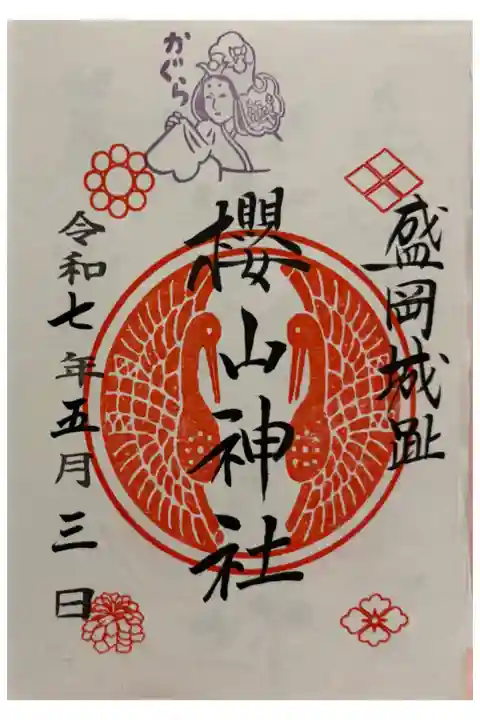 盛岡城趾
かぐら
櫻山神社
令和七年五月三日